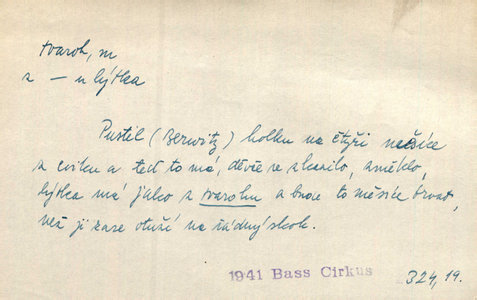 tvaroh, m
z – u lýtka
Pustil (Berwitz) holku na čtyři měsíce
z cviku a teď to má, děvče se zkazilo, změklo,
lýtka má jako z tvarohu a bude to měsíce trvat,
než ji zase otuží na řádný skok.
1941 Bass Cirkus 324, 19.